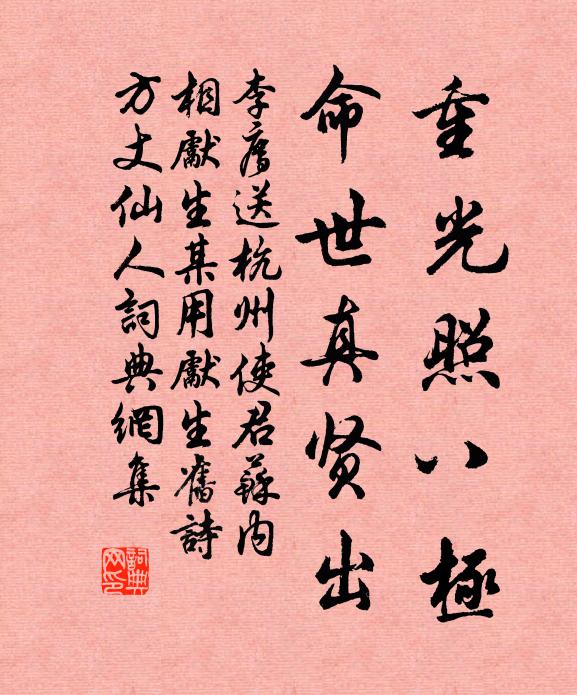 重光照八極
命世真贤出
李廌送杭州使君蘇内
相獻生某用獻生舊詩
方丈仙人詞典網集
詞典网印